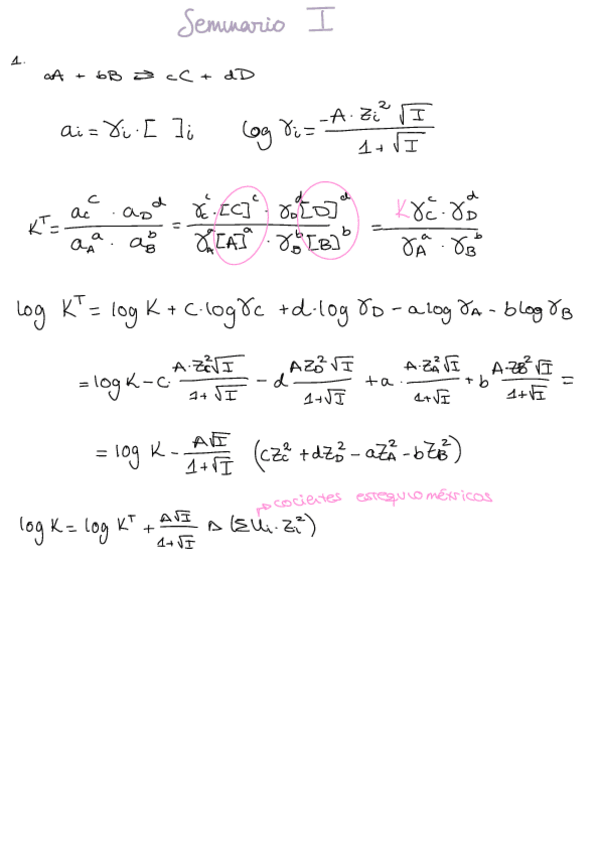 Seminario I
1.
aA + bB ⇄ cC + dD
ai = γi · [ ]i log γi = -A · Zi² √I / 1 + √I
K^T = aC^c · aD^d / aA^a · aB^b = γC^c · [C]^c · γD^d [D]^d / γA^a [A]^a · γB^b [B]^b = K γC^c · γD^d / γA^a · γB^b
log K^T = log K + c · log γC + d · log γD - a log γA - b log γB
= log K - c · A · ZC² √I / 1 + √I - d AZD² √I / 1 + √I + a · A · ZA² √I / 1 + √I + b A · ZB² √I / 1 + √I =
= log K - A√I / 1 + √I (cZC² + dZD² - aZA² - bZB²)
↱ cocientes estequiométricos
log K = log K^T + A√I / 1 + √I Δ (Σνi · Zi²)